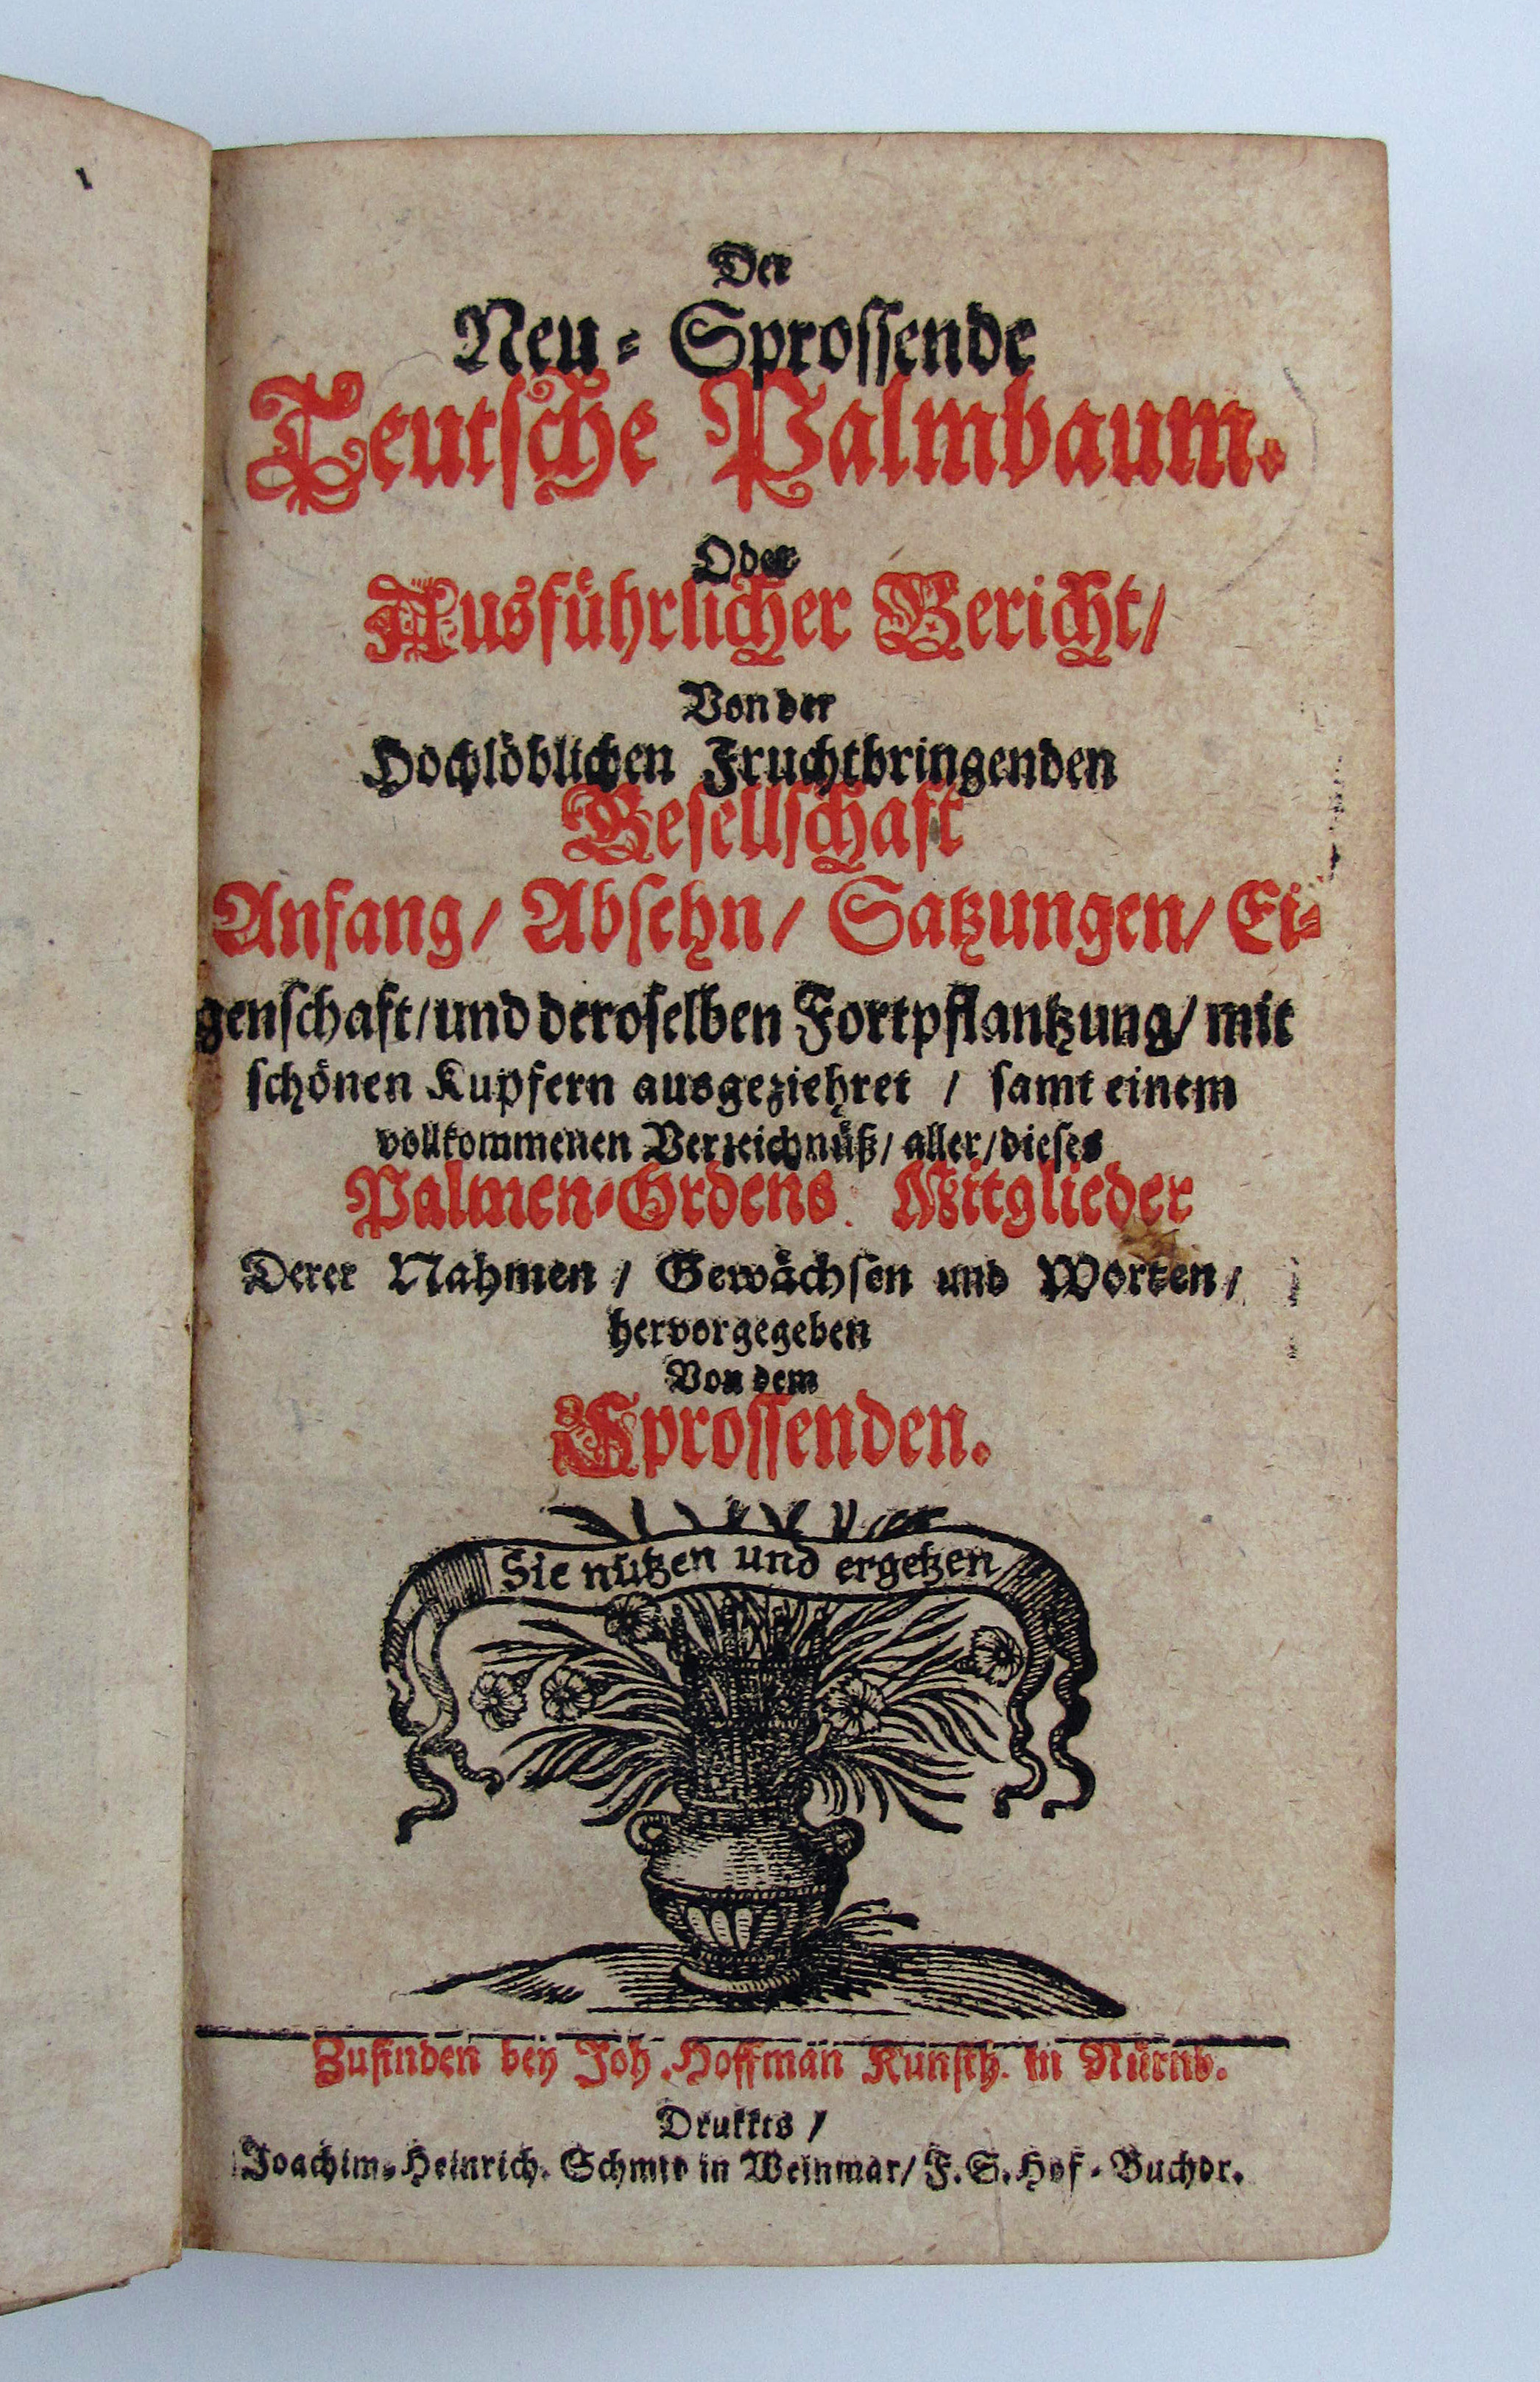 Der
Neu-Sprossende
Teutsche Palmbaum.
Oder
Ausführlicher Bericht/
Von der
Hochlöblichen Fruchtbringenden
Gesellschaft
Anfang/ Absehn/ Satzungen/ Ei-
genschaft/ und deroselben Fortpflantzung/ mit
schönen Kupfern ausgeziehret / samt einem
vollkommenen Verzeichnüß/ aller/ dieses
Palmen-Ordens Mitglieder
Derer Nahmen / Gewächsen und Worten/
hervorgegeben
Von dem
Sprossenden.
Sie nützen und ergetzen
Zufinden bey Joh. Hoffman Kunsth. in Nürnb.
Drukkts /
Joachim-Heinrich. Schmid in Weinmar/ F. S. Hof-Buchdr.